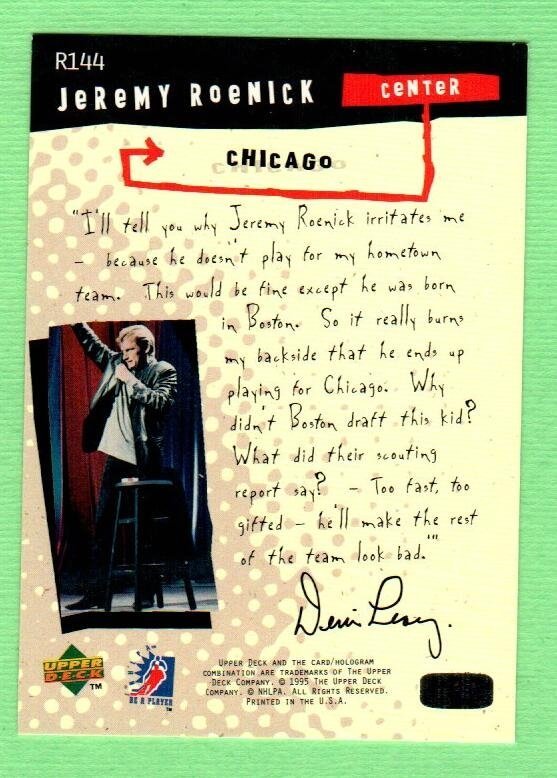 R144
JEREMY ROENICK
CENTER
CHICAGO
"I'll tell you why Jeremy Roenick irritates me
- because he doesn't play for my hometown
team. This would be fine except he was born
in Boston. So it really burns
my backside that he ends up
playing for Chicago. Why
didn't Boston draft this kid?
What did their scouting
report say? - Too fast, too
gifted - he'll make the rest
of the team look bad.'"
Denis Leary.
UPPER DECK AND THE CARD/HOLOGRAM
COMBINATION ARE TRADEMARKS OF THE UPPER
DECK COMPANY. © 1995 THE UPPER DECK
COMPANY. © NHLPA. ALL RIGHTS RESERVED.
PRINTED IN THE U.S.A.
UPPER
DECK
TM
BE A PLAYER
TM